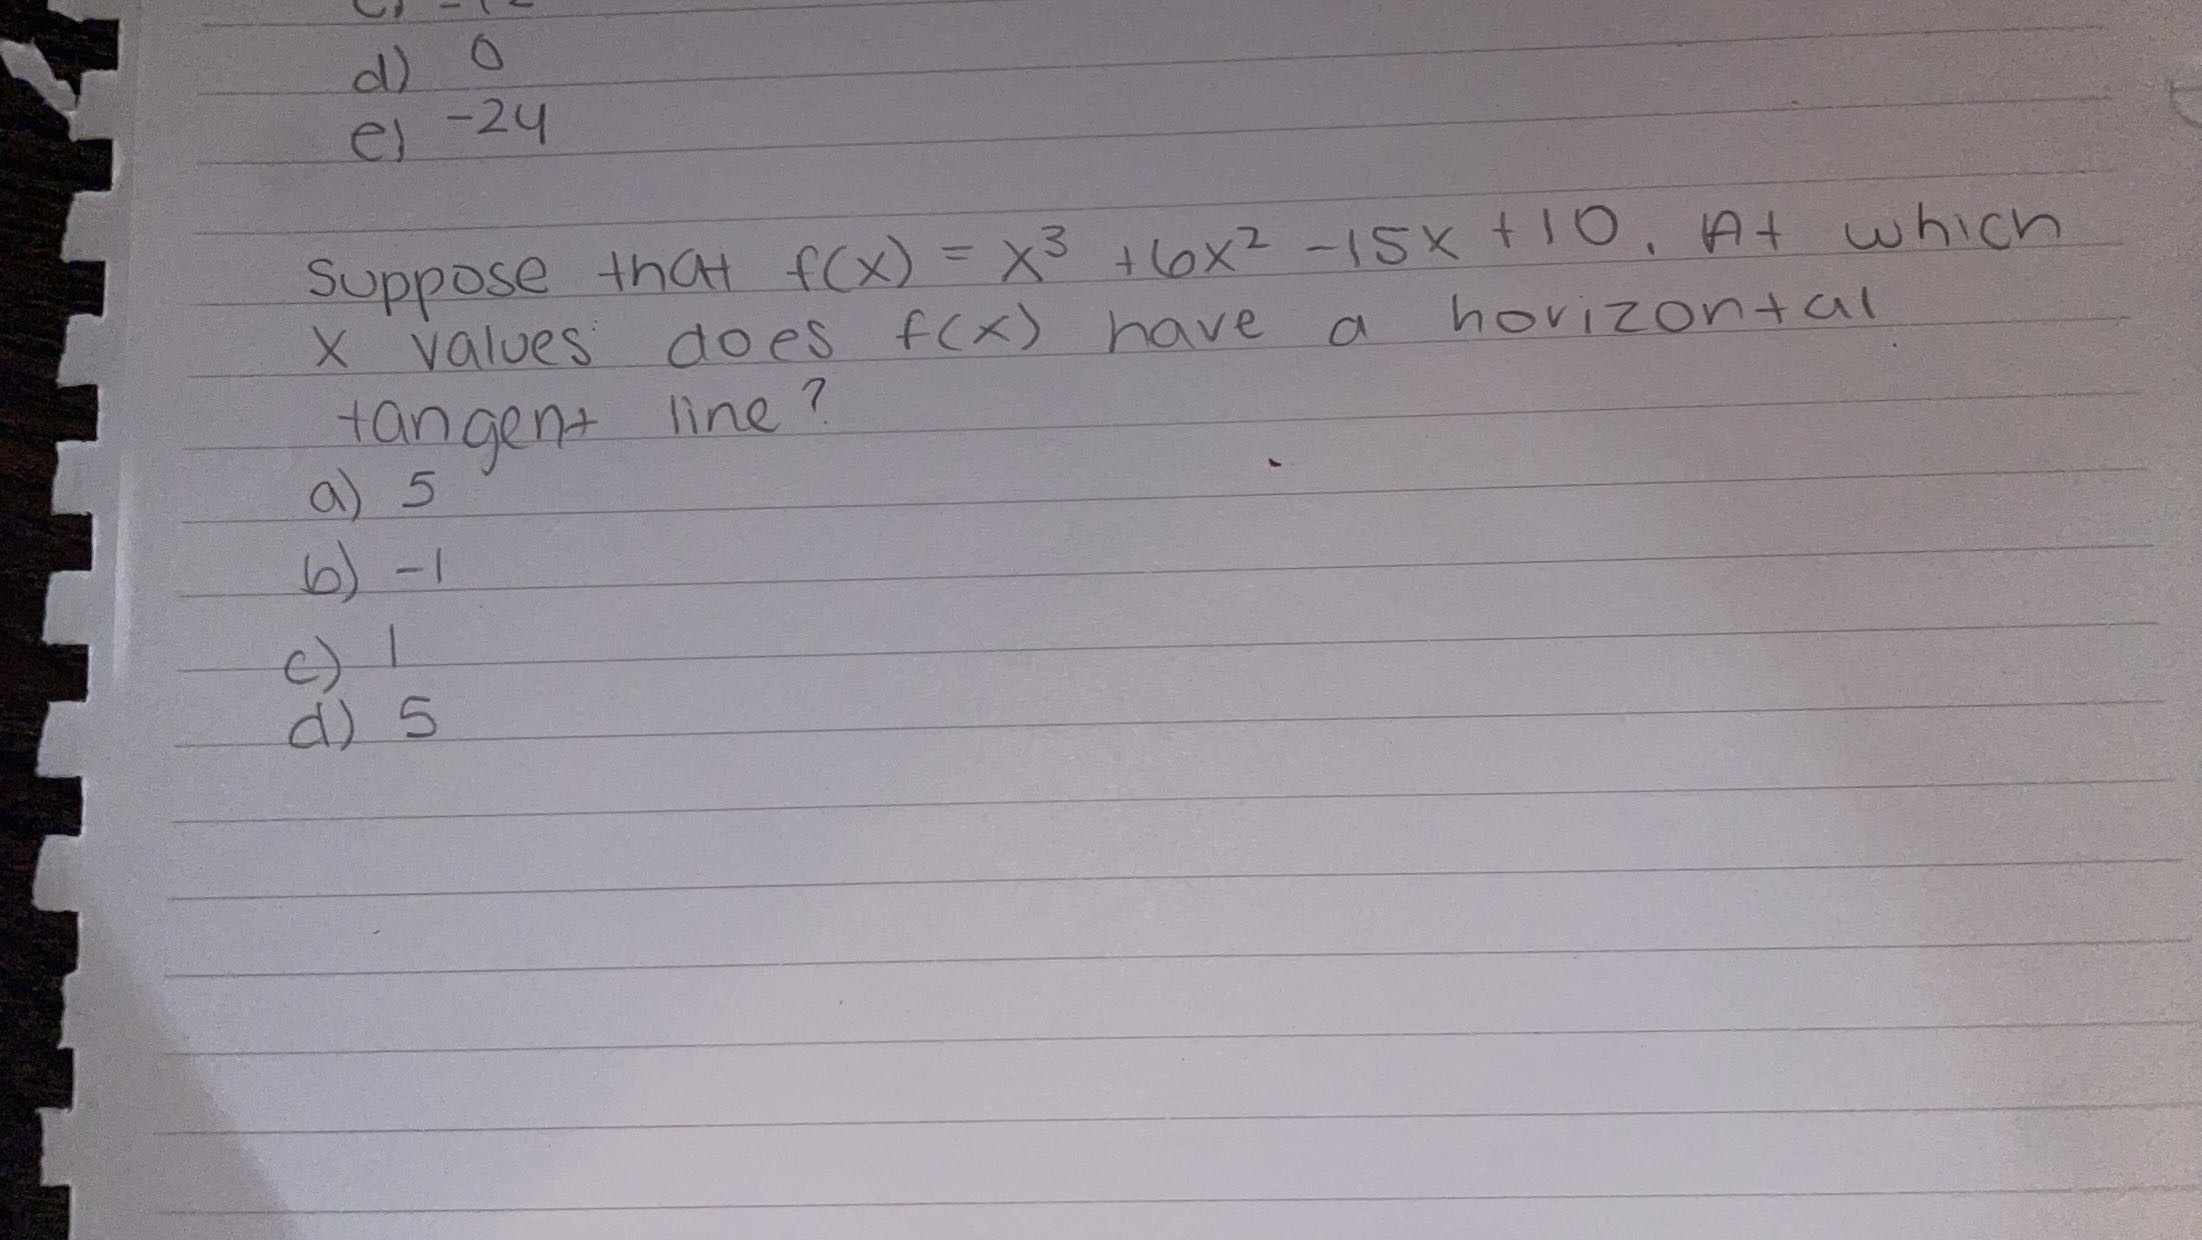 d) 0
e) -24
Suppose that f(x) = x³ +6x² -15x +10. At which
x values does f(x) have a horizontal
tangent line?
a) 5
b) -1
c) 1
d) 5